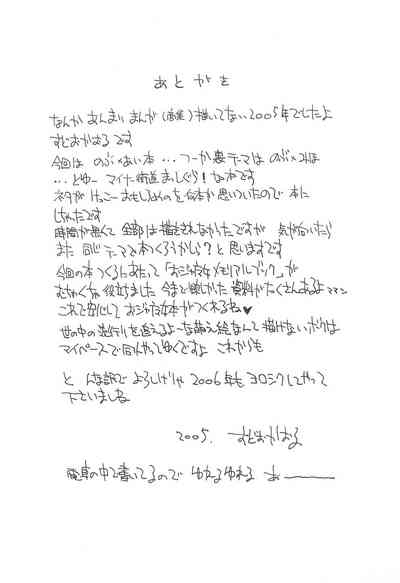 あとがき
なんか あんまり まんが(商業)描いてない2005年でしたよ
すどおかおる です
今回は のぶ×あい本 … つーか 裏テーマは のぶ×みほ
… とゆー マイナー街道まっしぐら! な本です
ネタが けっこー おもしろめのを 思いついたので 本に
しちゃったです
時間が無くて 全部は描ききれなかったですが 気が向いたら
また 同じテーマで本つくろうかしら?と思いますです
今回の本つくるにあたって「おジャ魔女メモリアルブック」が
むちゃくちゃ役立ちました 今まで無かった資料がたくさんあるよ ママン
これで安心して おジャ魔女本がつくれるね♥
世の中の流行りを追えるよーな萌え絵なんて描けないボクは
マイペースで同人やってゆくですよ これからも
と んな訳で よろしければ 2006年も ヨロシクしてやって
下さいましね
2005. すどおかおる
電車の中で書いてるので ゆれるゆれる あー